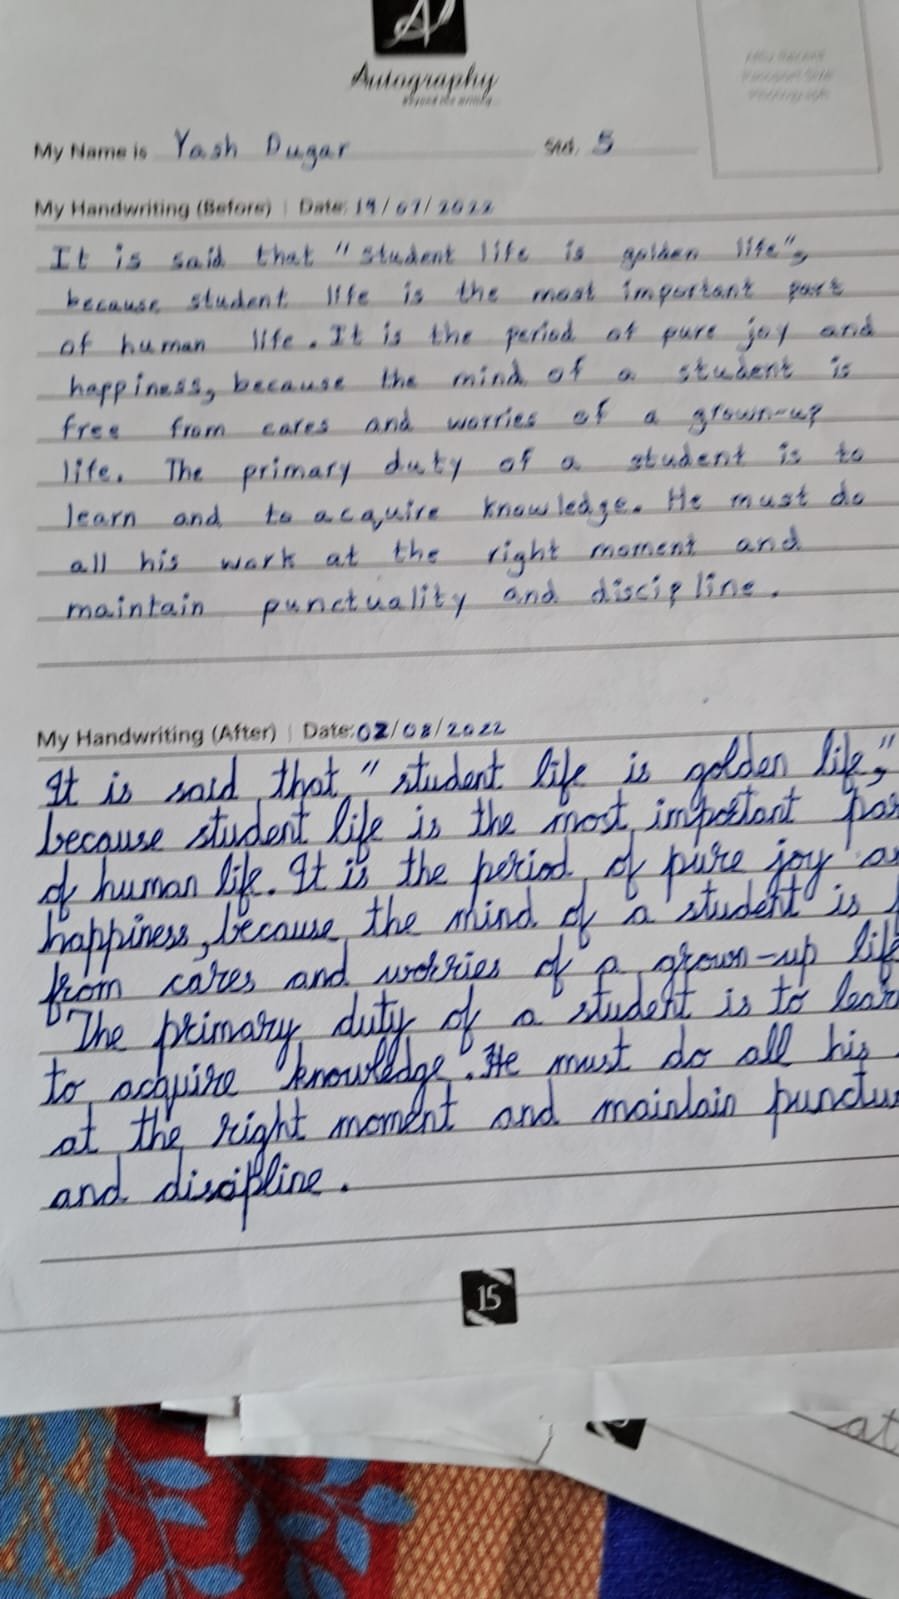 Autography
Beyond the writing...
Affix Recent
Passport Size
Photograph
My Name is Yash Dugar Std. 5
My Handwriting (Before) | Date: 19/07/2022
It is said that "student life is golden life",
because student life is the most important part
of human life. It is the period of pure joy and
happiness, because the mind of a student is
free from cares and worries of a grown-up
life. The primary duty of a student is to
learn and to acquire knowledge. He must do
all his work at the right moment and
maintain punctuality and discipline.
My Handwriting (After) | Date: 02/08/2022
It is said that "student life is golden life,"
because student life is the most important par
of human life. It is the period of pure joy a
happiness, because the mind of a student is
from cares and worries of a grown-up life
The primary duty of a student is to lear
to acquire knowledge. He must do all his
at the right moment and maintain punctu
and discipline.
15
at